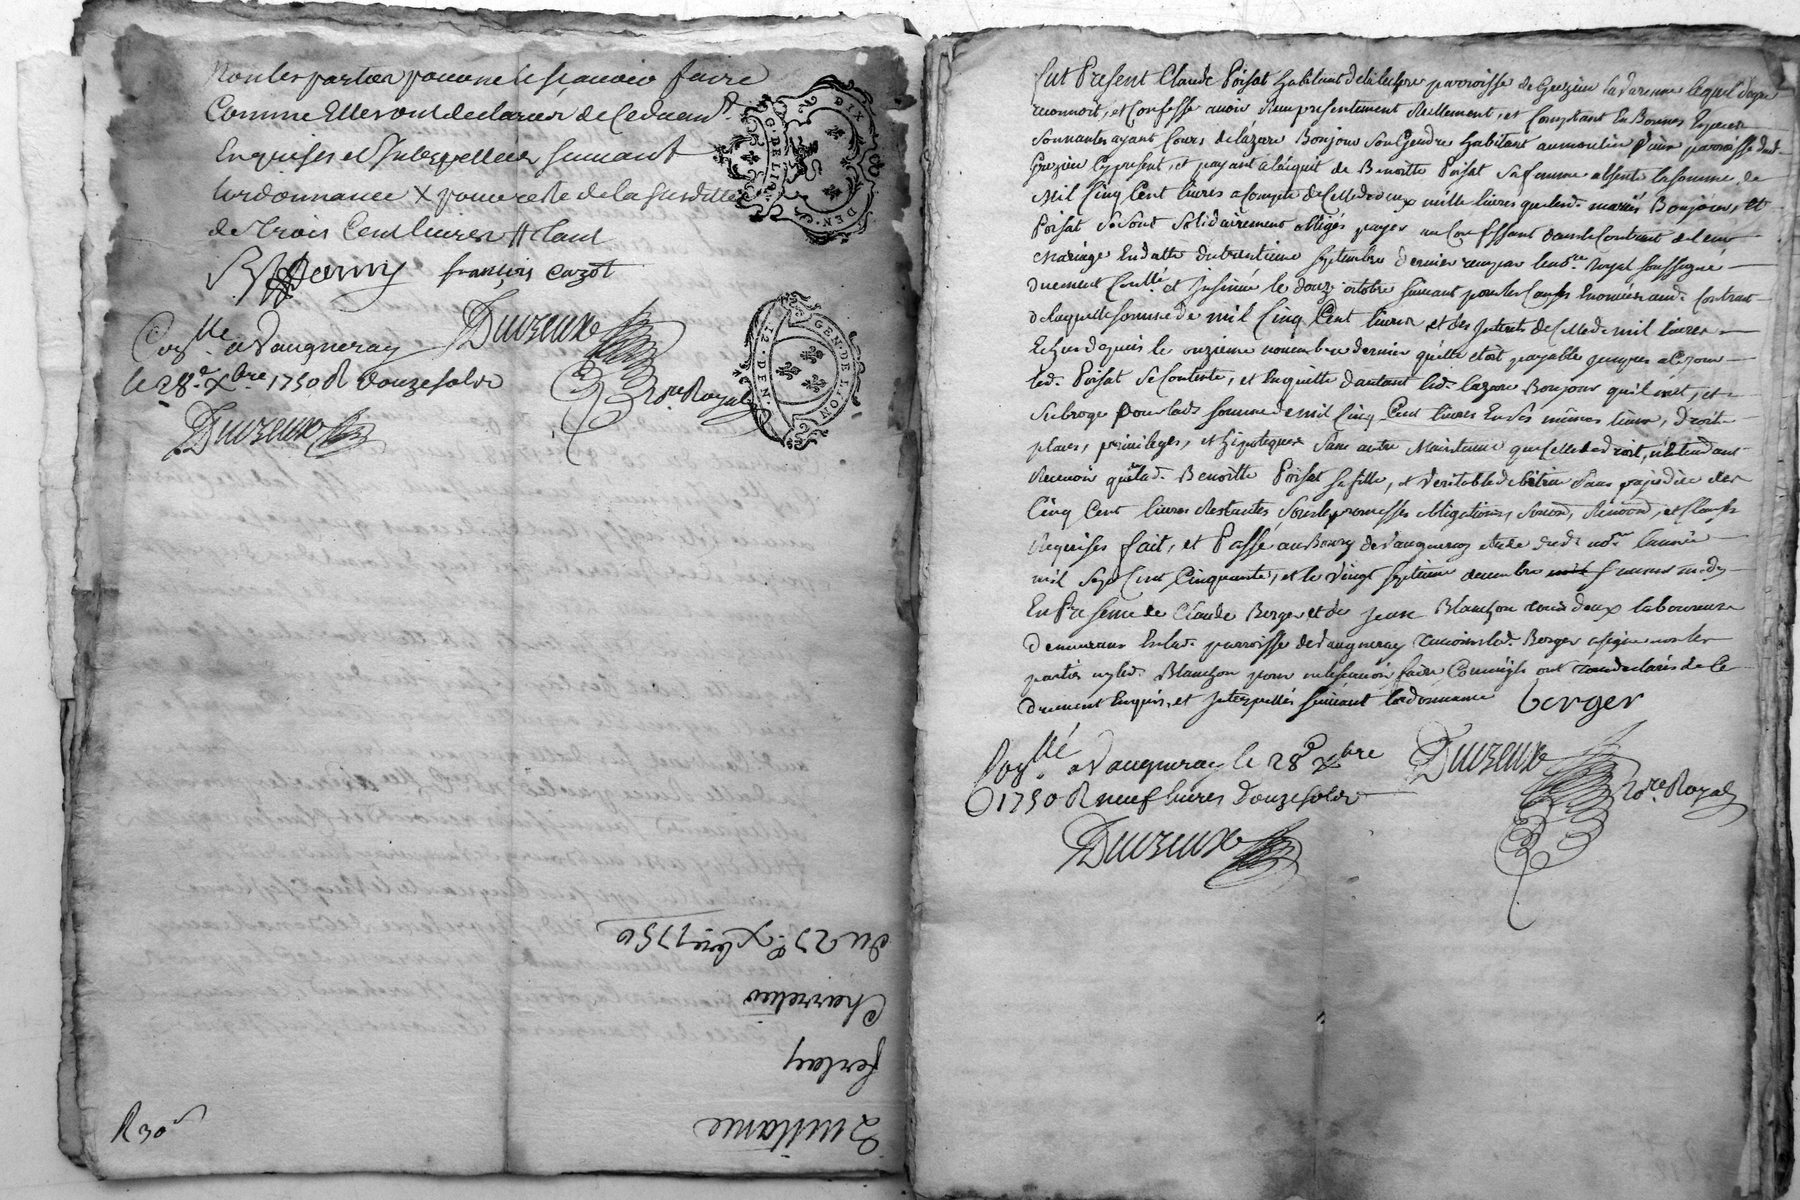 Non les parties pour ne le scavoir faire
Comme Elles ont declarees de ce duem.t
Enquises et Interpellees suivant
Lordonnance x pour reste de la susditte
de Trois Cent livres //
françois cuzot
Con.lle a Vaugneray
le 28.e Xbre 1750 R douze sols
Duvzeuxe
no.re Royal
Duvzeuxe
G. DE LION
DIX DEN.
GEN. DE LION
12. DEN.
du 27.e Xbre 1750
ferlay
Quittance
R 30
fut Present Claude Poisat habitant de parroisse de Grezieu la Varenne lequel de gre
reconnoit, et Confesse avoir Reçu presentement Reellement, et Comptant En Bonnes Especes
sonnantes ayant Cours de lazare Bonjour Son Gendre habitant au moulin parroisse dud.
Grezieu Cy present, et payant a laquit de Benoitte Poisat Sa femme absente la somme de
Mil Cinq Cent livres a Compte de Celle de deux mille livres que lesd. mariés Bonjour, et
Poisat Se sont Solidairement obligés payer au Confessant dans le Contrat de leur
Mariage En datte du trentieme Septembre dernier reçu par le no.re Royal soussigné
duement Con.llé et Insinué le douze octobre suivant pour les Causes Enoncées aud. Contrat
de laquelle somme de mil Cinq Cent livres et des Interets de Celle de mil livres
Echus depuis le onzieme novembre dernier qu'elle etoit payable jusques a ce jour
led. Poisat Se Contente, et En quitte d'autant led. lazare Bonjour qu'il met, et
Subroge pour lad. somme de mil Cinq Cent livres En Ses mêmes lieux, droits
places, privileges, et hipoteques Sans autre Maintenue que Celle de droit, n'Entendant
Recevoir que lad. Benoitte Poisat Sa fille, et veritable debitrice Sans prejudice des
Cinq Cent livres Restantes Sous les promesses obligations, Soum.ons, Renon.ons, et Clauses
Requises fait, et Passé au Bourg de Vaugneray etude dud. no.re l'année
mil Sept Cent Cinquante, et le Vingt Septieme decembre avant midy
En Presence de Claude Berger et de Jean Blanchon tous deux laboureurs
demeurans En lad. parroisse de Vaugneray temoins led. Berger a signe non les
parties ny led. Blanchon pour ne le scavoir faire Comm'ils ont tous declarés de Ce
duement Enquis, et Interpellés suivant lordonnance berger
Con.llé a Vaugneray le 28.e Xbre
1750 R neuf livres douze sols
Duvzeuxe
no.re Royal
Duvzeuxe